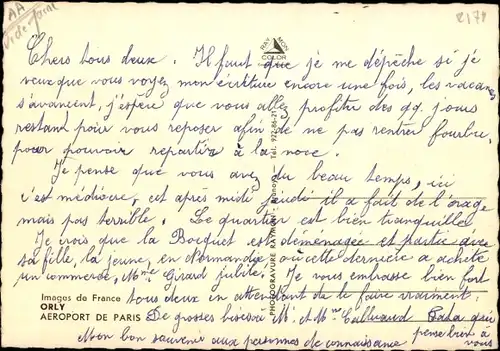 AA
Vi de face
R178
Chers tous deux. Il faut que je me dépèche si je
veux que vous voyez mon écriture encore une fois, les vacances
s'avancent, j'espère que vous allez profiter des qq. jours
restant pour vous reposer afin de ne pas rentrer fourbu,
pour pouvoir repartir à la noce.
Je pense que vous avez du beau temps, ici
c'est médiocre, cet après midi jeudi il a fait de l'orage
mais pas terrible. Le quartier est bien tranquille
Je crois que la Bocquet est déménagée et partie avec
sa fille, la jeune, en Normandie où cette dernière a acheté
un commerce, Mme Girard jubile. Je vous embrasse bien fort
tous deux en attendant de le faire vraiment.
De grosses bises à Mr et Mme Papa qui
pense bien à
vous
Mon bon souvenir aux personnes de connaissance
Images de France
ORLY
AEROPORT DE PARIS
RAY MON
COLOR
PHOTOGRAVURE RAYMON - Tél. 922-86-21